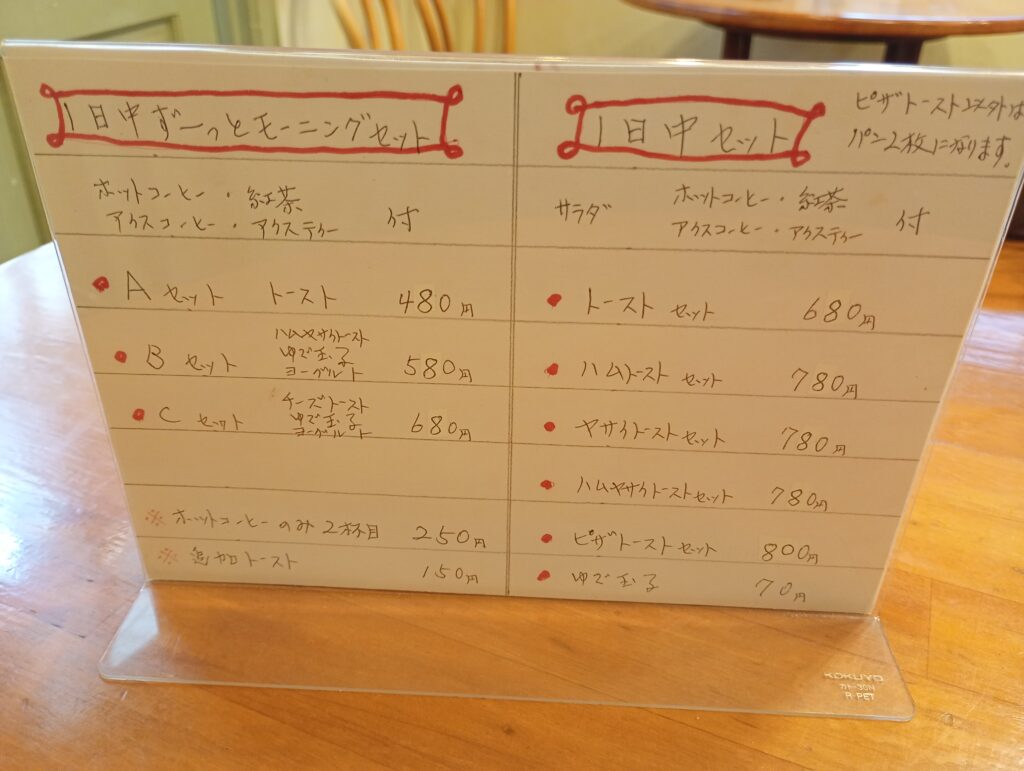 1日中ずーっとモーニングセット
ホットコーヒー・紅茶
アイスコーヒー・アイスティー 付
● Aセット トースト 480円
● Bセット ハムヤサイトースト
ゆで玉子
ヨーグルト 580円
● Cセット チーズトースト
ゆで玉子
ヨーグルト 680円
※ ホットコーヒーのみ2杯目 250円
※ 追加トースト 150円
1日中セット
ピザトースト以外は
パン2枚になります。
サラダ ホットコーヒー・紅茶
アイスコーヒー・アイスティー 付
● トーストセット 680円
● ハムトーストセット 780円
● ヤサイトーストセット 780円
● ハムヤサイトーストセット 780円
● ピザトーストセット 800円
● ゆで玉子 70円
KOKUYO
カト-30N
R PET